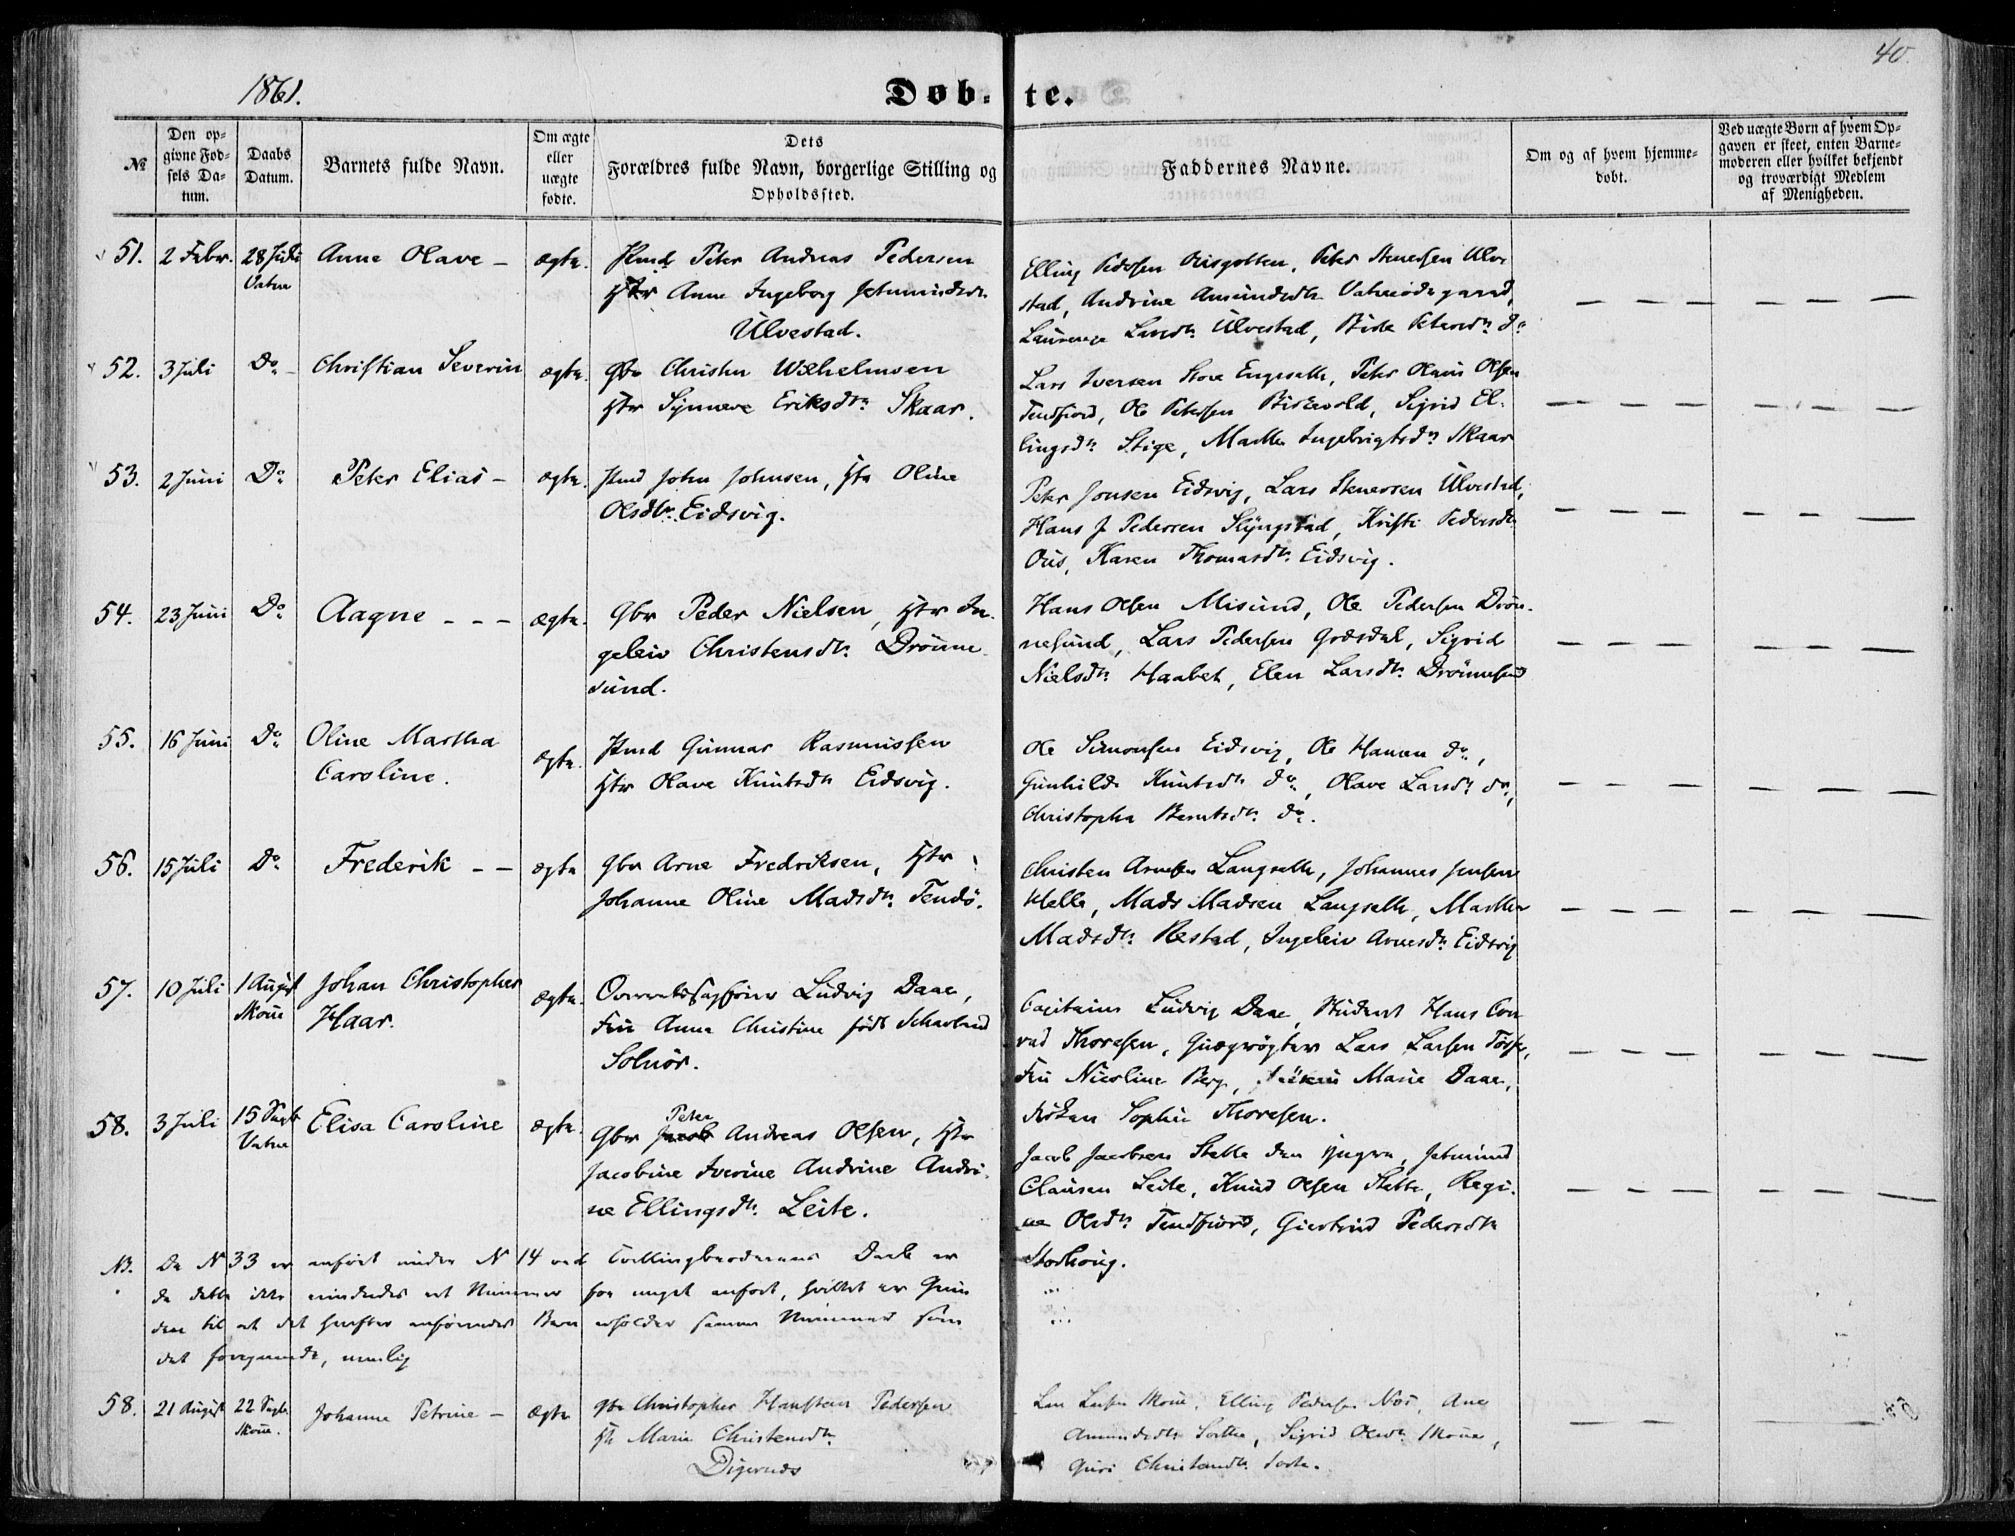 40.
1861.
Døb-te.
№
Den opgivne Fødsels Datum.
Daabs Datum.
Barnets fulde Navn.
Om ægte eller uægte fødte.
Dets Forældres fulde Navn, borgerlige Stilling og Opholdssted.
Faddernes Navne.
Om og af hvem hjemmedøbt.
Ved uægte Børn af hvem Opgaven er skeet, enten Barnemoderen eller hvilket bekjendt og troværdigt Medlem af Menigheden.
51. 2 Febr. 28 Juli Vatne Anne Olave – ægte.
Peter Andreas Pedersen
Anne Ingeborg
Ulvestad.
Elling Pedersen, Peter Stenersen Ulve
stad, Andrine Amundsdtr.
Larsdtr. Ulvestad, Petersdtr. do
52. 3 Juli Do – Christian Severin ægte.
Gbr Christen Wilhelmsen
Htr Synneve Eriksdtr. Skaar.
Lars Iversen Store Engesætte, Peter Olaus Olsen
Tendfjord, Ole Petersen, Sigrid El-
lingsdtr. Stige, Marthe Ingebrigtsdtr. Skaar
53. 2 Juni Do Peter Elias – ægte.
Jmd John Johnsen, Htr Oline
Olsdtr. Eidsvig.
Peter Jonsen Eidsvig, Lars Stenersen Ulvestad,
Hans J Pedersen Slyngstad, Kristi Pedersdtr
Ous, Karen Thomasdtr. Eidsvig.
54. 23 Juni Do Aagne – – – ægte.
Gbr Peder Nielsen, Htr In-
geleiv Christensdtr. Drønne-
sund.
Hans Olsen Misund, Ole Pedersen Drøn-
nesund, Lars Pedersen Godsdal, Sigrid
Nielsdtr. Haabet, Elen Larsdtr. Drønnesund
55. 16 Juni Do Oline Martha
Caroline. ægte.
Jmd Gunnar Rasmussen
Htr Olave Knutsdtr Eidsvig.
Ole Simonsen Eidsvig, Ole Hansen do,
Gunhilde Knutsdtr do, Olave Larsdtr do,
Christopha Berntsdtr. do.
56. 15 Juli Do Frederik – – ægte
Gbr Arne Fredriksen, Htr
Johanne Oline Madsdtr. Tendø.
Christen Arnesen Langsætte, Johannes Jensen
Helle, Mads Madsen Langsætte, Marthe
Madsdtr. Restad, Ingeleiv Arnesdtr. Eidsvig
57. 10 Juli 1 August Skoue Johan Christopher
Haar. ægte.
Overretssagfører Ludvig Daae,
Fru Anna Christine født
Solnør.
Capitain Ludvig Daae, Student Hans Con
rad Thoresen, Lars Larsen
Fru Nicoline Berg, Frøken Marie Daae,
Frøken Sophie Thoresen.
58. 3 Juli 15 Septb Vatne Elisa Caroline ægte.
Peter
Gbr Jacob Andreas Olsen, Htr
Jacobine Iverine Andrine Andri-
ne Ellingsdtr. Leite.
Jacob Jacobsen Stette den yngre, Jetmund
Clausen Leite, Knud Olsen Stette, Regi-
ne Olsdtr. Tendfjord, Giertrud Pedersdtr
Storhoug.
NB. Da N 33 er anført under N 14 ved Tvillingbrødrenes Daab er
da dette ikke erindredes et Nummer for meget anført, hvilket er Grun
den til at det herefter anførendes Barn erholder samme Nummer som
det foregaaende, nemlig
58. 21 August 22 Septb Skoue. Johanne Petrine – ægte
Gbr Christopher Hanssen Pedersen
Htr Marie Christensdtr.
Digernæs
Lars Larsen Skoue, Elling Pedersen, Ane
Amundsdtr, Sigrid Olsdtr. Skoue,
Guri